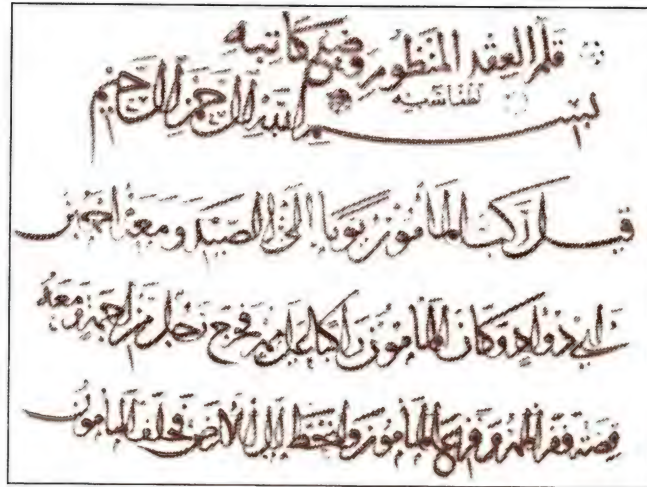 قلم العقد المنظوم وضع كاتبه
بسم الله الرحمن الرحيم
قيل ركب المأمون يوما إلى الصيد ومعه احمد بن
ابي دواد وكان المأمون راكبا على مهر فخرج رجل من اجمة ومعه
قصة فنفر المهر وفزع المأمون وانحط إلى الأرض فحلف المأمون